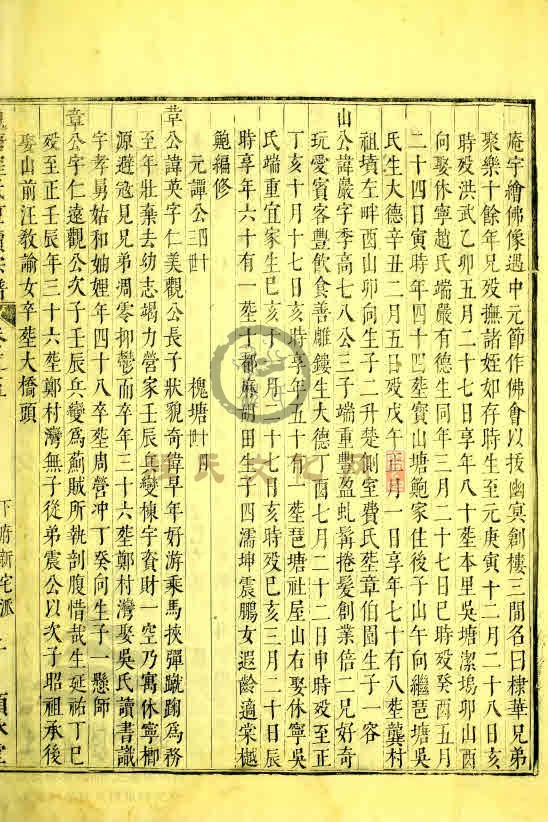 庵字繪佛像遇中元節作佛會以拔幽冥創樓三間名曰棣華兄弟
聚樂十餘年兄歿撫諸姪如存時生至元庚寅十二月二十八日亥
時歿洪武乙卯五月二十七日享年八十塟本里吳塘潔塢卯山酉
向娶休寧趙氏端嚴有德生同年三月二十七日巳時歿癸酉五月
二十四日寅時年四十四塟寶山塘鮑家住後子山午向繼琶塘吳
氏生大德辛丑二月五日歿戊午正月一日享年七十有八塟龔村
祖墳左畔酉山卯向生子二升楚側室費氏塟章伯園生子一容
山公諱嚴字季高七八公三子端重豐盈虬髯捲髮創業倍二兄好奇
玩愛賓客豐飲食善雕鏤生大德丁酉七月二十二日申時歿至正
丁亥十月十七日亥時享年五十有一塟琶塘社屋山右娶休寧吳
氏端重宜家生己亥十月二十七日亥時歿己亥三月二十日辰
時享年六十有一塟十都麻榨田生子四濡坤震鵬女遐齡適棠樾
鮑編修
元譚公四世 槐塘廿世
韋公諱英字仁美觀公長子狀貌奇偉早年好游乘馬挾彈蹴踘為務
至年壯棄去幼志竭力營家壬辰變棟宇資財一空乃寓休寧椰
源避寇見兄弟凋零抑鬱而卒年三十六塟鄭村灣娶吳氏讀書識
字孝舅姑和妯娌年四十八卒塟周營冲丁癸向生子一懸師
章公字仁遠觀公次子壬辰兵變為薊賊所執剖腹惜哉生延祐丁巳
歿至正壬辰年三十六塟鄭村灣無子從弟震公以次子昭祖承後
娶山前汪教諭女卒塟大橋頭
下府新宅派